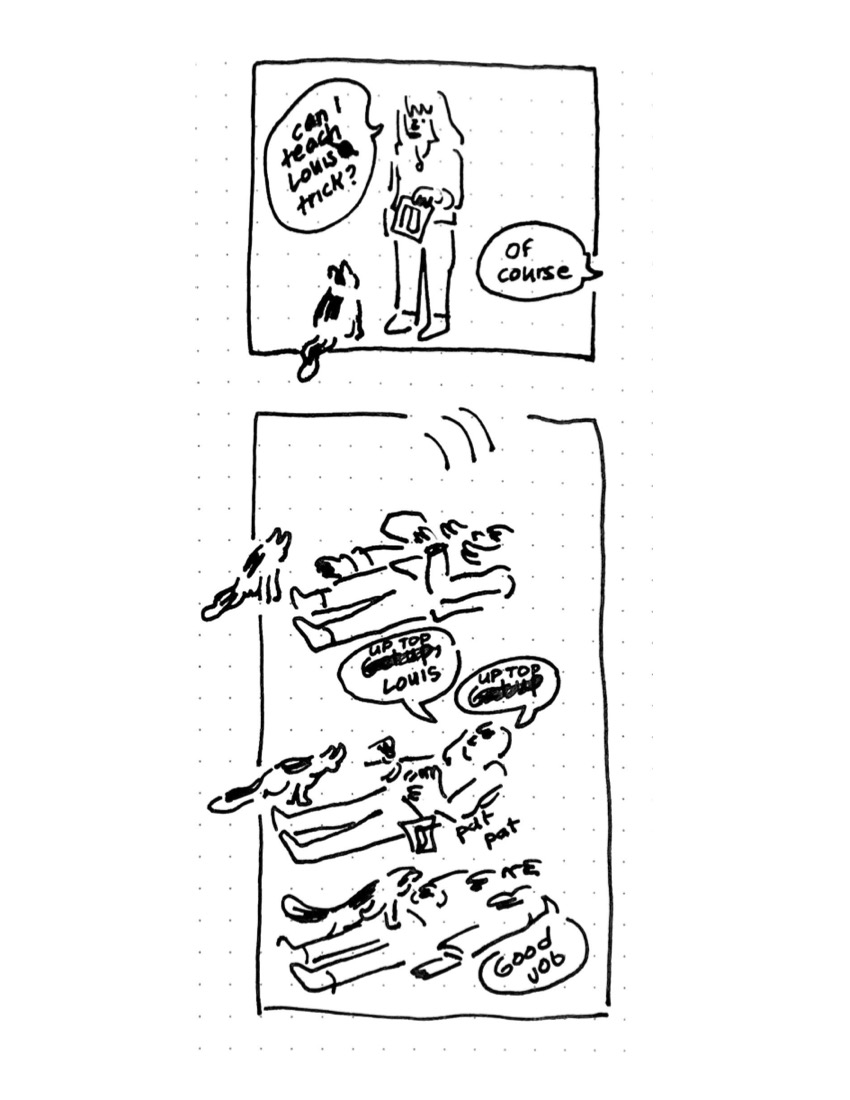 can I
teach
Louis a
trick?
Of
course
UP TOP
LOUIS
UP TOP
pat
pat
Good
job